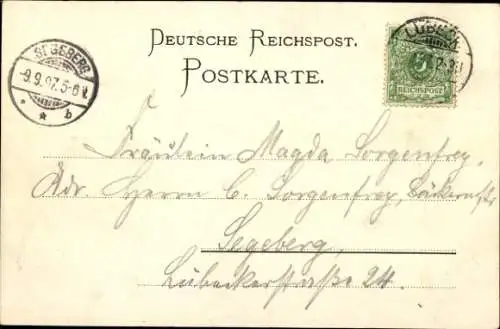 DEUTSCHE REICHSPOST.
POSTKARTE.
SEGEBERG
9.9.97.5-6N.
* * b
LÜBECK
5
REICHSPOST
Fräulein Magda Sorgenfrey,
Adr. Herrn C. Sorgenfrey, Bäckermstr
Segeberg,
Lübeckerstraße 24.